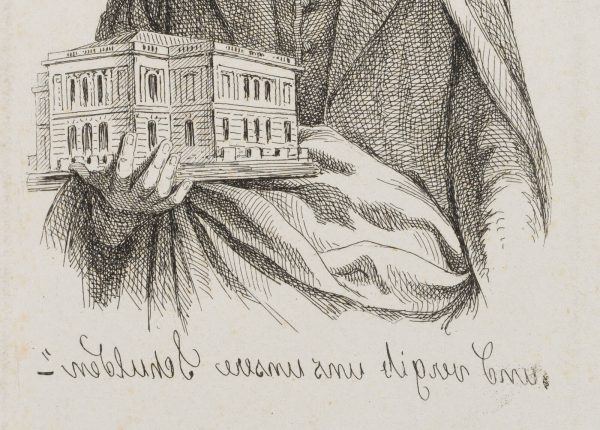 „und vergib uns unsere Schulden.“